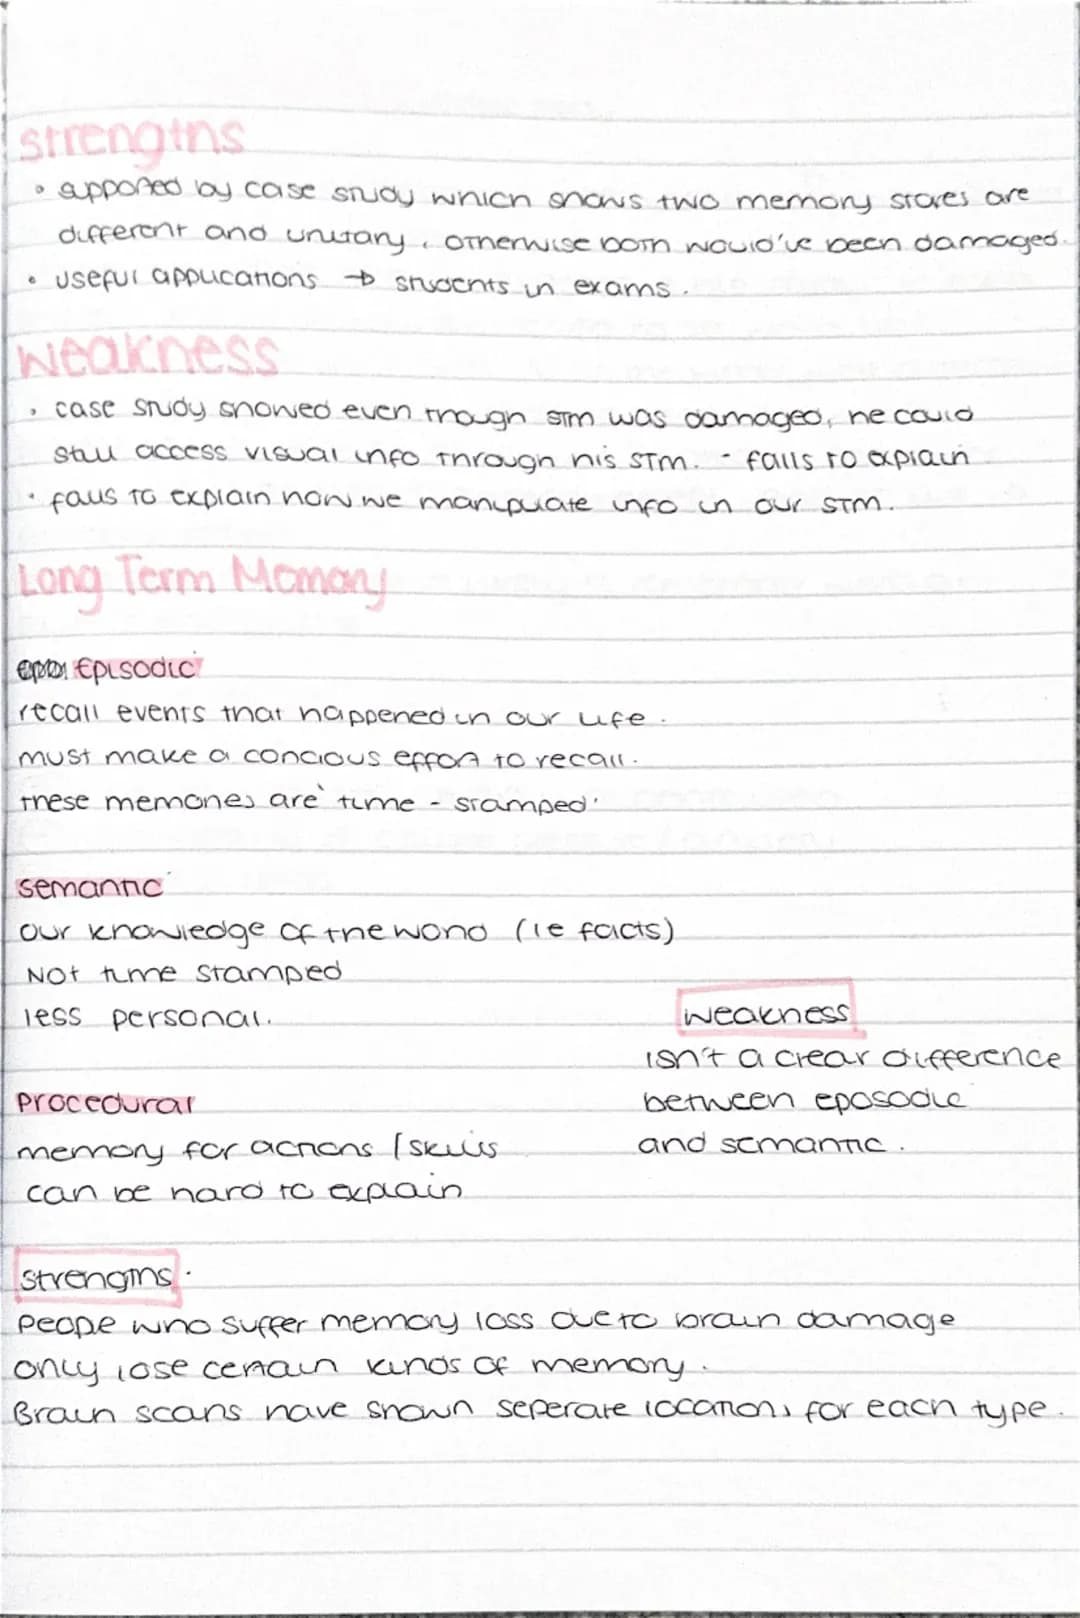 strengths
• supported by case study which shows two memory stores are
different and unitary, otherwise both would've been damaged.
• useful applications → students in exams.
Weakness
• case study showed even though STM was damaged, he could
still access visual info through his STM. - fails to explain
• fails to explain how we manipulate info in our STM.
Long Term Memory
Episodic
recall events that happened in our life.
must make a concious effort to recall.
these memories are 'time - stamped'
semantic
our knowledge of the world (ie facts)
Not time stamped
less personal.
weakness
isn't a clear difference
between eposodic
and semantic.
Procedural
memory for actions / skills
can be hard to explain
strengths.
People who suffer memory loss due to brain damage
only lose certain kinds of memory.
Brain scans have shown seperate locations for each type.